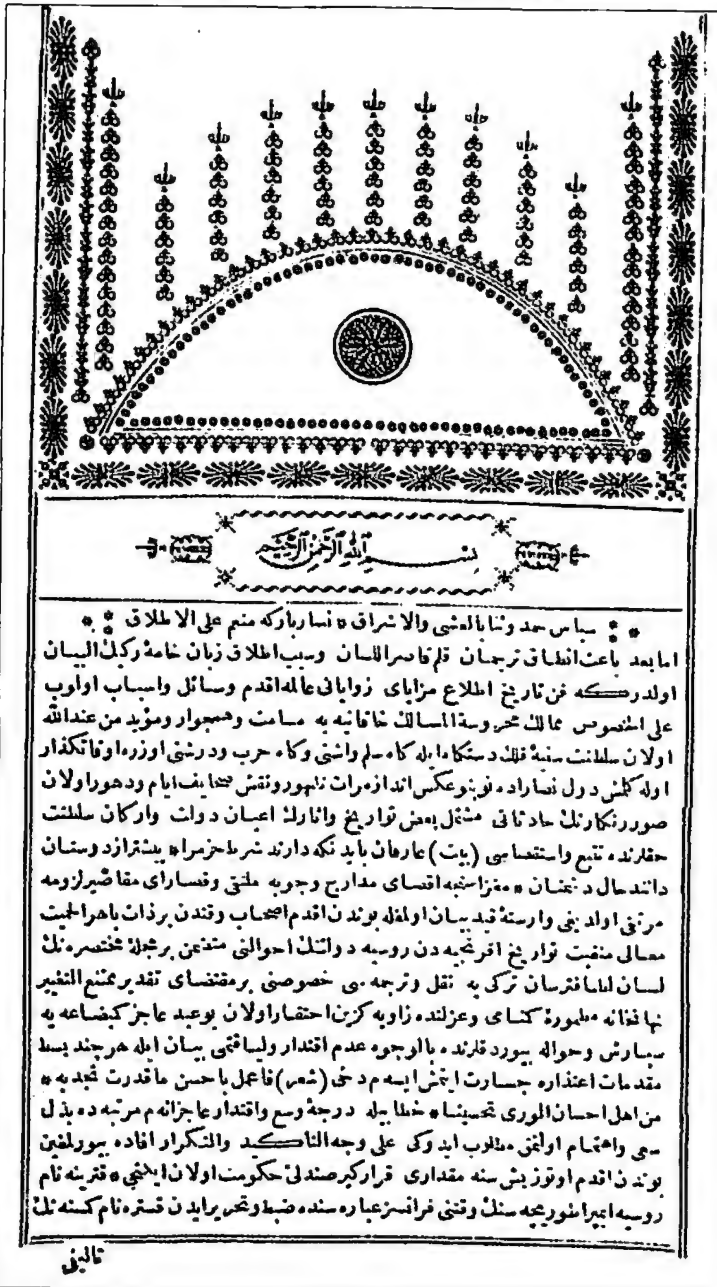 بسم الله الرحمن الرحيم
سپاس حمد وثنا بالعشی والاشراق * نسار بارکه منعم علی الاطلاق
اما بعد باعث انطاق ترجمان قلم قاصر اللسان وسبب اطلاق زبان خامهٔ رکیک البیان
اولدرکه فن تاریخ اطلاع مزایای زوایای عالمه اقدم وسائل واسباب اولوب
علی الخصوص ممالک محروسة المسالک خاقانیه یه مسامت وهمجوار ومؤید من عندالله
اولان سلطنت سنیهٔ فلک دستکاه ایله کاه سلم واشتی وکاه حرب ودرشتی اوزره اوقاتکذار
اوله کلمش دول نصاراده نوبنو عکس انداز مرات ظهور ونقش صحایف ایام ودهور اولان
صور رنکارنک حادثاتی مشتمل بعض تواریخ واثارک اعیان دولت وارکان سلطنت
حقلرنده تتبع واستقصاسی (بیت) عارفان باید نکه دارند شرط حزم را * پیشتر از دوستان
دانند حال دشمنان * مغزاسنجه اقصای مدارج وجوبه ملتقی وقصارای مقاصیر لزومه
مرتقی اولدیغی وارستهٔ قید بیان اولمغله بوندن اقدم اصحاب وقتدن بر ذات باهر الحمیت
معالی منقبت تواریخ افرنجیه دن روسیه دولتنک احوالنی متضمن بر مجلهٔ مختصره نک
لسان لطافترسان ترکی یه نقل وترجمه سی خصوصنی بر مقتضای تقدیر ممتنع التغییر
نهانخانه مطمورهٔ کمنامی وعزلتده زاویه کزین احتقار اولان بو عبد عاجز کم بضاعه یه
سپارش وحواله بیوردقلرنده بالوجوه عدم اقتدار ولیاقتمی بیان ایله هر چند بسط
مقدمات اعتذاره جسارت ایتمش ایسه م دخی (شعر) فاعمل باحسن ما قدرت تجد به *
من اهل احسان الوری تحسینا * خطابیله درجهٔ وسع واقتدار عاجزانه م مرتبه ده بذل
سعی واهتمام اولنمق مطلوب ایدوکی علی وجه التاکید والتکرار افاده بیورلمغین
بوندن اقدم اوتوز بش سنه مقداری قرارکیر صندلئ حکومت اولان ایکنجی * قترینه نام
روسیه ایمپراطوریچه سنک وقتنی فرانسز عباره سنده ضبط وتحریر ایدن قستره نام کسنه نک
تالیفی